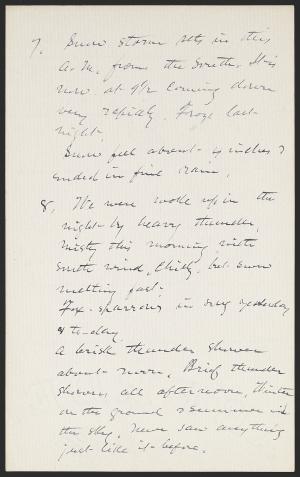 7. Snow storm sets in this
A.M. from the South. It is
now at 9 1/2 coming down
very rapidly. Froze last
night.
Snow fell about 4 inches &
ended in fine rain.
8. We were woke up in the
night by heavy thunder,
misty this morning with
South wind, Chilly, but snow
melting fast.
Fox-sparrows in song yesterday
& to-day.
A brisk thunder shower
about noon. Brief thunder
showers all afternoon, Winter
on the ground & summer in
the sky, never saw anything
just like it before.